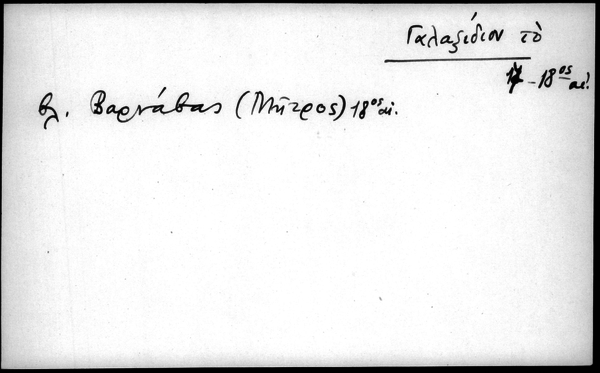 Γαλαξείδιον τὸ
17 - 18ος αἰ.
βλ. Βαρνάβας (Μῆτρος) 18ος αἰ.